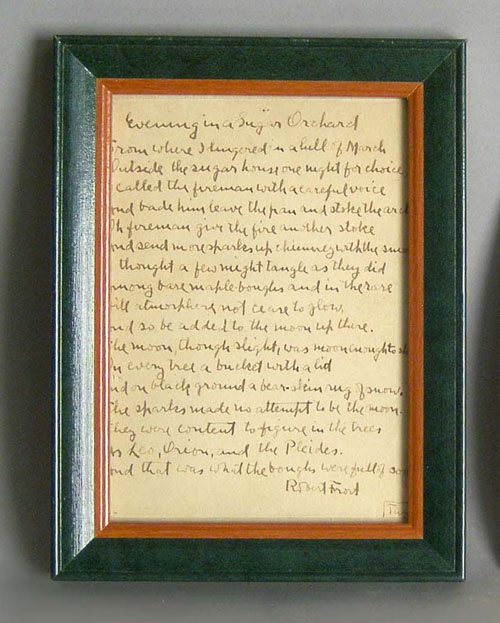 Evening in a Sugar Orchard
From where I lingered in a lull of March
Outside the sugar house one night for choice
called the fireman with a careful voice
and bade him leave the pan and stoke the arc
Oh fireman give the fire another stoke
and send more sparks up chimney with the smo
thought a few might tangle as they did
mong bare maple boughs and in the rare
ill atmosphere not cease to glow,
nd so be added to the moon up there.
The moon, though slight, was moon enough to sh
On every tree a bucket with a lid
nd on black ground a bear-skin rug of snow.
The sparks made no attempt to be the moon.
They were content to figure in the trees
As Leo, Orion, and the Pleides.
and that was what the boughs were full of soo
Robert Frost